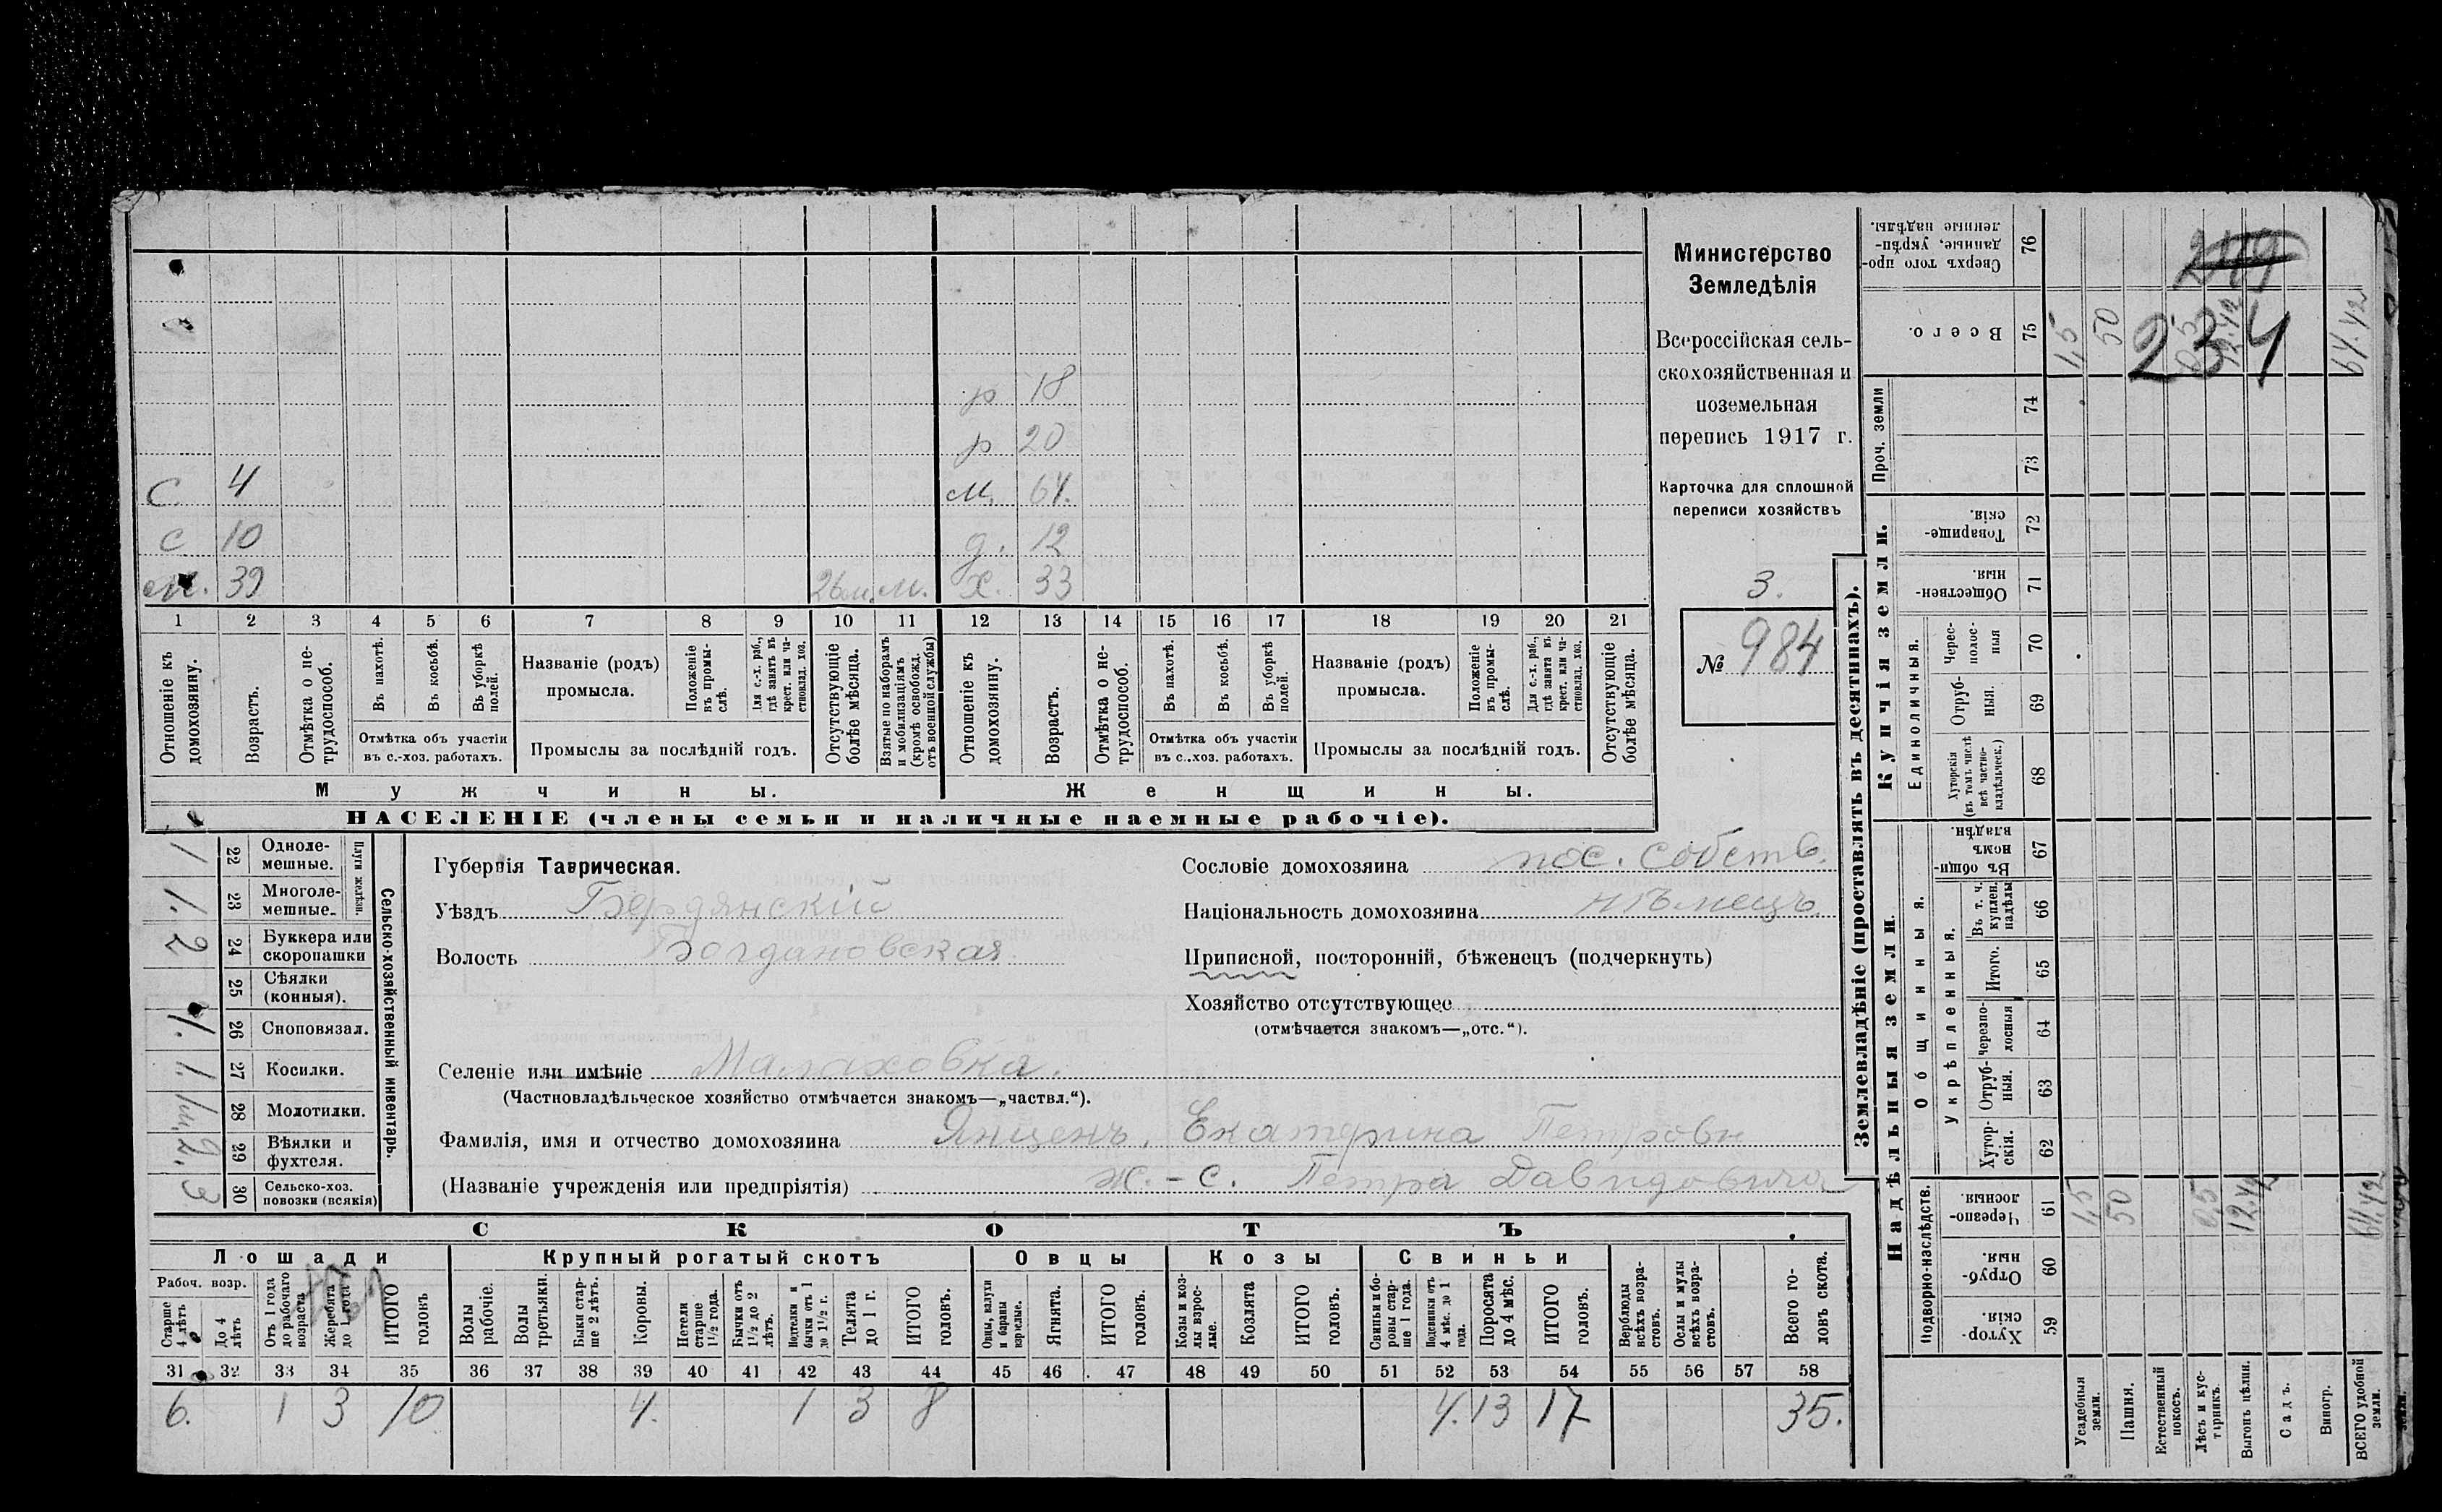 Министерство
Земледѣлія
Всероссійская сель-
скохозяйственная и
поземельная
перепись 1917 г.
Карточка для сплошной
переписи хозяйствъ
3.
№ 984
р 18
р 20
С 4 м. 64.
С 10 д. 12
39 26 м. м. х. 33
1 2 3 4 5 6 7 8 9 10 11 12 13 14 15 16 17 18 19 20 21
Отношеніе къ домохозяину.
Возрастъ.
Отмѣтка о не-трудоспособ.
Въ пахотѣ.
Въ косьбѣ.
Въ уборкѣ полей.
Отмѣтка объ участіи
въ с.-хоз. работахъ.
Названіе (родъ)
промысла.
Положеніе въ промы-слѣ.
Для с.-х. раб., гдѣ занятъ въ крест. или ча-стновлад. хоз.
Промыслы за послѣдній годъ.
Отсутствующіе болѣе мѣсяца.
Взятые по наборамъ и мобилизаціямъ (кромѣ освобожд. отъ военной службы)
Отношеніе къ домохозяину.
Возрастъ.
Отмѣтка о не-трудоспособ.
Въ пахотѣ.
Въ косьбѣ.
Въ уборкѣ полей.
Отмѣтка объ участіи
въ с.-хоз. работахъ.
Названіе (родъ)
промысла.
Положеніе въ промы-слѣ.
Для с.-х. раб., гдѣ занята въ крест. или ча-стновлад. хоз.
Промыслы за послѣдній годъ.
Отсутствующіе болѣе мѣсяца.
Мужчины.
Женщины.
НАСЕЛЕНІЕ (члены семьи и наличные наемные рабочіе).
Сельско-хозяйственный инвентарь.
Плуги желѣзн.
1 22 Одноле-мешные.
1. 23 Многоле-мешные.
2 24 Буккера или скоропашки
25 Сѣялки (конныя).
1. 26 Сноповязал.
1. 27 Косилки.
28 Молотилки.
2. 29 Вѣялки и фухтеля.
3 30 Сельско-хоз. повозки (всякія)
Губернія Таврическая.
Уѣздъ Бердянскій
Волость Богдановская
Сословіе домохозяина пос. собств.
Національность домохозяина нѣмецъ.
Приписной, посторонній, бѣженецъ (подчеркнуть)
Хозяйство отсутствующее
(отмѣчается знакомъ—„отс.“).
Селеніе или имѣніе Малаховка.
(Частновладѣльческое хозяйство отмѣчается знакомъ—„частвл.“).
Фамилія, имя и отчество домохозяина Янценъ, Екатерина Петровн
(Названіе учрежденія или предпріятія) ж. - с. Петра Давидовича
СКОТЪ.
Лошади Крупный рогатый скотъ Овцы Козы Свиньи
Рабоч. возр.
Старше 4 лѣтъ
До 4 лѣтъ
Отъ 1 года до рабочаго возраста
Жеребята до 1 года
ИТОГО головъ
Волы рабочіе.
Волы третьяки.
Быки стар-ше 2 лѣтъ.
Коровы.
Нетели старше 1½ года.
Бычки отъ 1½ до 2 лѣтъ.
Подтелки и бычки отъ 1 до 1½ г.
Телята до 1 г.
ИТОГО головъ.
Овцы, валухи и бараны взрослые.
Ягнята.
ИТОГО головъ.
Козы и коз-лы взрос-лые.
Козлята
ИТОГО головъ.
Свиньи и бо-ровы стар-ше 1 года.
Подсвинки отъ 4 мѣс. до 1 года.
Поросята до 4 мѣс.
ИТОГО головъ.
Верблюды всѣхъ возра-стовъ.
Ослы и мулы всѣхъ возра-стовъ.
Всего го-ловъ скота.
31 32 33 34 35 36 37 38 39 40 41 42 43 44 45 46 47 48 49 50 51 52 53 54 55 56 57 58
6. 1 3 10 4. 1 3 8 4. 13 17 35.
Землевладѣніе (проставлять въ десятинахъ).
Надѣльныя земли.
Купчія земли.
Проч. земли
Подворно-наслѣдств.
Общинныя.
Укрѣпленныя.
Единоличныя.
Сверхъ того про-данные, укрѣп-ленные надѣлы. 76
Всего. 75
74
73
Товарище-скія. 72
Обществен-ныя. 71
Черес-полос-ныя 70
Отруб-ныя. 69
Хуторскія (въ томъ числѣ всѣ частно-владѣльческ.) 68
Въ общи-номъ владѣн. 67
Въ т. ч. куплен. надѣлы 66
Итого. 65
Черезпо-лосныя 64
Отруб-ныя. 63
Хутор-скія. 62
Черезпо-лосныя. 61
Отруб-ныя. 60
Хутор-скія 59
Усадебныя земли. 1,5 1,5
Пашня. 50 50
Естественный покосъ.
Лѣсъ и кус-тарникъ. 0,5 0,5
Выгонъ цѣлин. 12.42 12.42
Садъ.
Виногр.
ВСЕГО удобной земли. 64.42 64.42
234